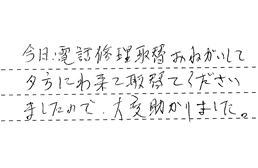 今日、電話修理取替おねがいして
夕方にわ来て取替てください
ましたので、大変助かりました。